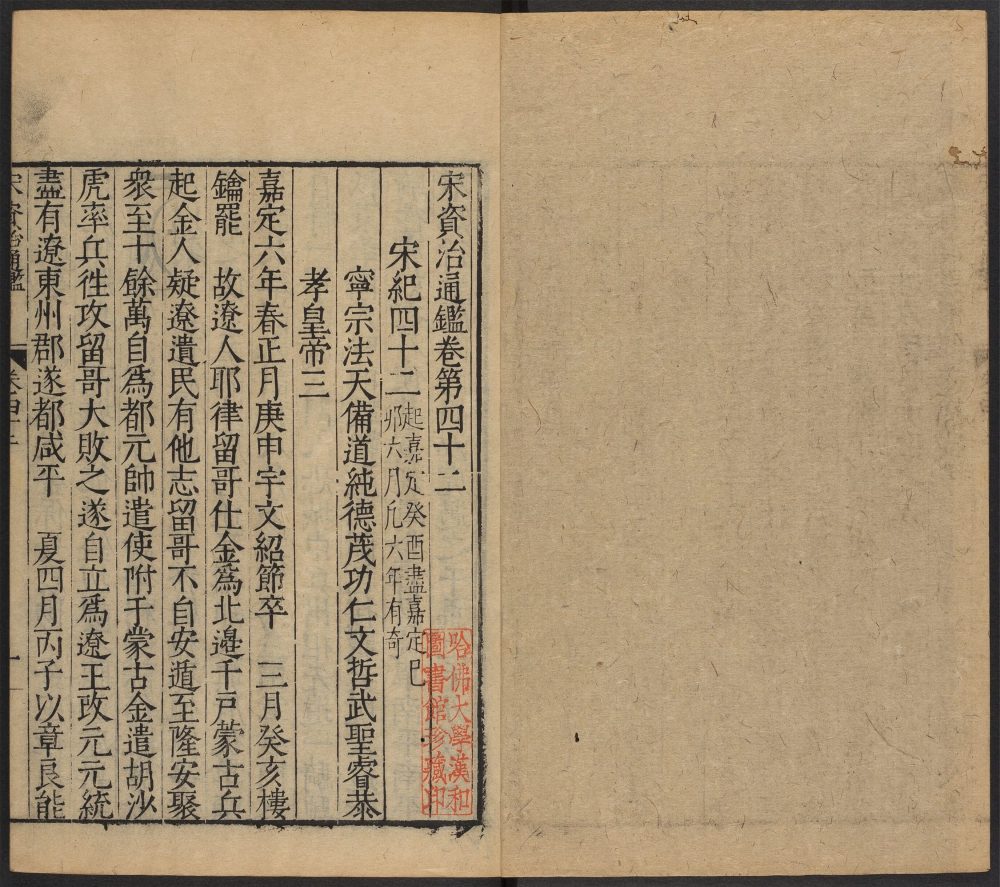 宋資治通鑑卷第四十二
宋紀四十二起嘉定癸酉盡嘉定己
卯六月凡六年有奇
寧宗法天備道純德茂功仁文哲武聖睿恭
孝皇帝三
嘉定六年春正月庚申宇文紹節卒　三月癸亥樓
鑰罷　故遼人耶律留哥仕金爲北邉千戸蒙古兵
起金人疑遼遺民有他志留哥不自安遁至隆安聚
衆至十餘萬自爲都元帥遣使附于蒙古金遣胡沙
虎率兵徃攻留哥大敗之遂自立爲遼王改元元統
盡有遼東州郡遂都咸平　夏四月丙子以章良能
宋資治通鑑
卷四十二
一
哈佛大學漢和
圖書館珍藏印